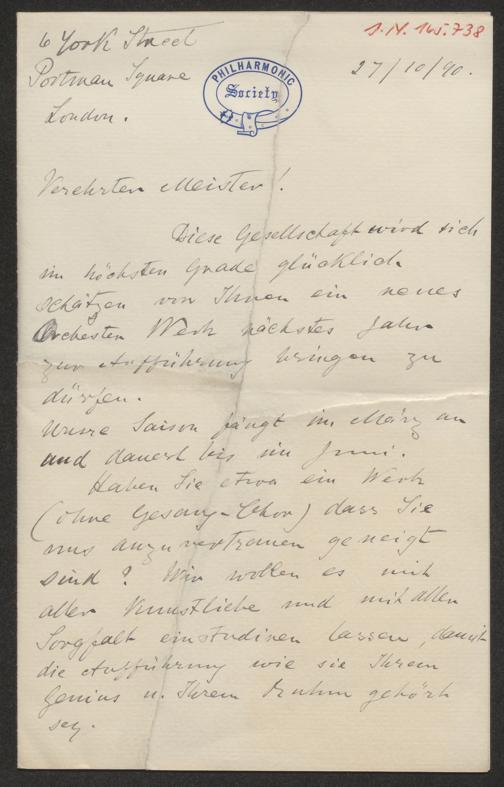 6 York Street
I.N. 165.738
Portman Square
27/10/90.
London.
PHILHARMONIC
Society
Verehrten Meister!
Diese Gesellschaft wird sich
im höchsten Grade glücklich
schätzen von Ihnen ein neues
Orchesten Werk nächstes Jahr
zur Aufführung bringen zu
dürfen.
Unsre Saison fängt im März an
und dauert bis im Juni.
Haben Sie etwa ein Werk
(ohne Gesang-Chor) dass Sie
uns anzuvertrauen geneigt
sind? Wir wollen es mit
aller Kunstliebe und mit allen
Sorgfalt einstudiren lassen, damit
die Aufführung wie sie Ihrem
Genius u. Ihrem Ruhm gehört
sey.